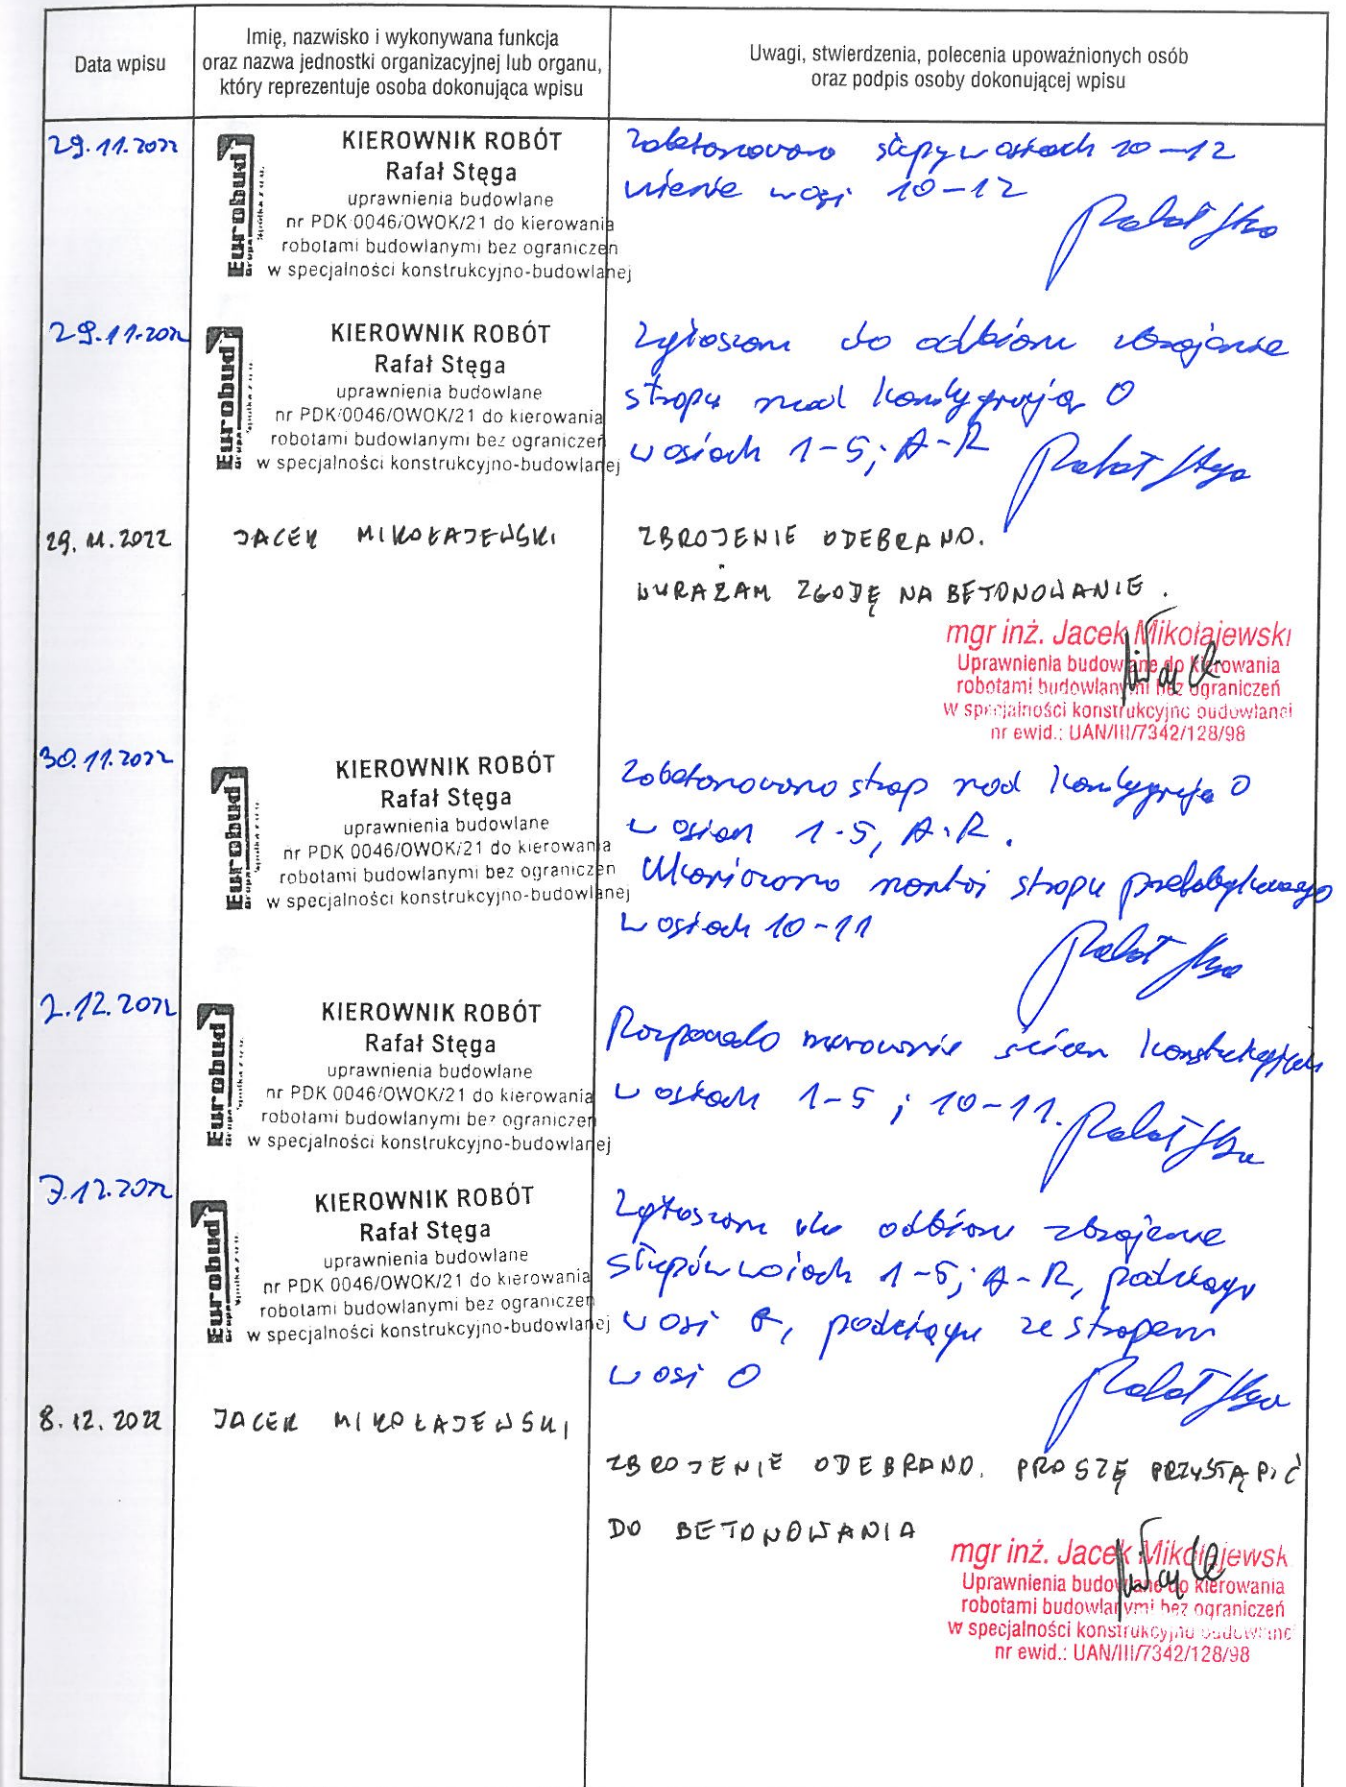 Data wpisu
Imię, nazwisko i wykonywana funkcja
oraz nazwa jednostki organizacyjnej lub organu,
który reprezentuje osoba dokonująca wpisu
Uwagi, stwierdzenia, polecenia upoważnionych osób
oraz podpis osoby dokonującej wpisu
29.11.2022
Eurobud
Grupa
KIEROWNIK ROBÓT
Rafał Stęga
uprawnienia budowlane
nr PDK 0046/OWOK/21 do kierowania
robotami budowlanymi bez ograniczeń
w specjalności konstrukcyjno-budowlanej
Zabetonowano słupy w osiach 10-12
w osi 10-12
29.11.2022
Eurobud
Grupa
KIEROWNIK ROBÓT
Rafał Stęga
uprawnienia budowlane
nr PDK/0046/OWOK/21 do kierowania
robotami budowlanymi bez ograniczeń
w specjalności konstrukcyjno-budowlanej
Zgłoszam do odbioru zbrojenie
stropu nad kondygnacją 0
w osiach 1-5; A-R
29.11.2022
JACEK MIKOŁAJEWSKI
ZBROJENIE ODEBRANO.
WYRAŻAM ZGODĘ NA BETONOWANIE.
mgr inż. Jacek Mikołajewski
Uprawnienia budowlane do kierowania
robotami budowlanymi bez ograniczeń
w specjalności konstrukcyjno budowlanej
nr ewid.: UAN/III/7342/128/98
30.11.2022
Eurobud
Grupa
KIEROWNIK ROBÓT
Rafał Stęga
uprawnienia budowlane
nr PDK 0046/OWOK/21 do kierowania
robotami budowlanymi bez ograniczeń
w specjalności konstrukcyjno-budowlanej
Zabetonowano strop nad kondygnacją 0
w osiach 1-5, A-R.
Ukończono montaż stropu prefabrykowanego
w osiach 10-11
2.12.2022
Eurobud
Grupa
KIEROWNIK ROBÓT
Rafał Stęga
uprawnienia budowlane
nr PDK 0046/OWOK/21 do kierowania
robotami budowlanymi bez ograniczeń
w specjalności konstrukcyjno-budowlanej
Rozpoczęto murowanie ścian konstrukcyjnych
w osiach 1-5; 10-11.
7.12.2022
Eurobud
Grupa
KIEROWNIK ROBÓT
Rafał Stęga
uprawnienia budowlane
nr PDK 0046/OWOK/21 do kierowania
robotami budowlanymi bez ograniczeń
w specjalności konstrukcyjno-budowlanej
Zgłoszam do odbioru zbrojenie
słupów w osiach 1-5; A-R, podciągu
w osi podciągu ze stropem
w osi 0
8.12.2022
JACEK MIKOŁAJEWSKI
ZBROJENIE ODEBRANO. PROSZĘ PRZYSTĄPIĆ
DO BETONOWANIA
mgr inż. Jacek Mikołajewsk
Uprawnienia budowlane do kierowania
robotami budowlanymi bez ograniczeń
w specjalności konstrukcyjno budowlanej
nr ewid.: UAN/III/7342/128/98